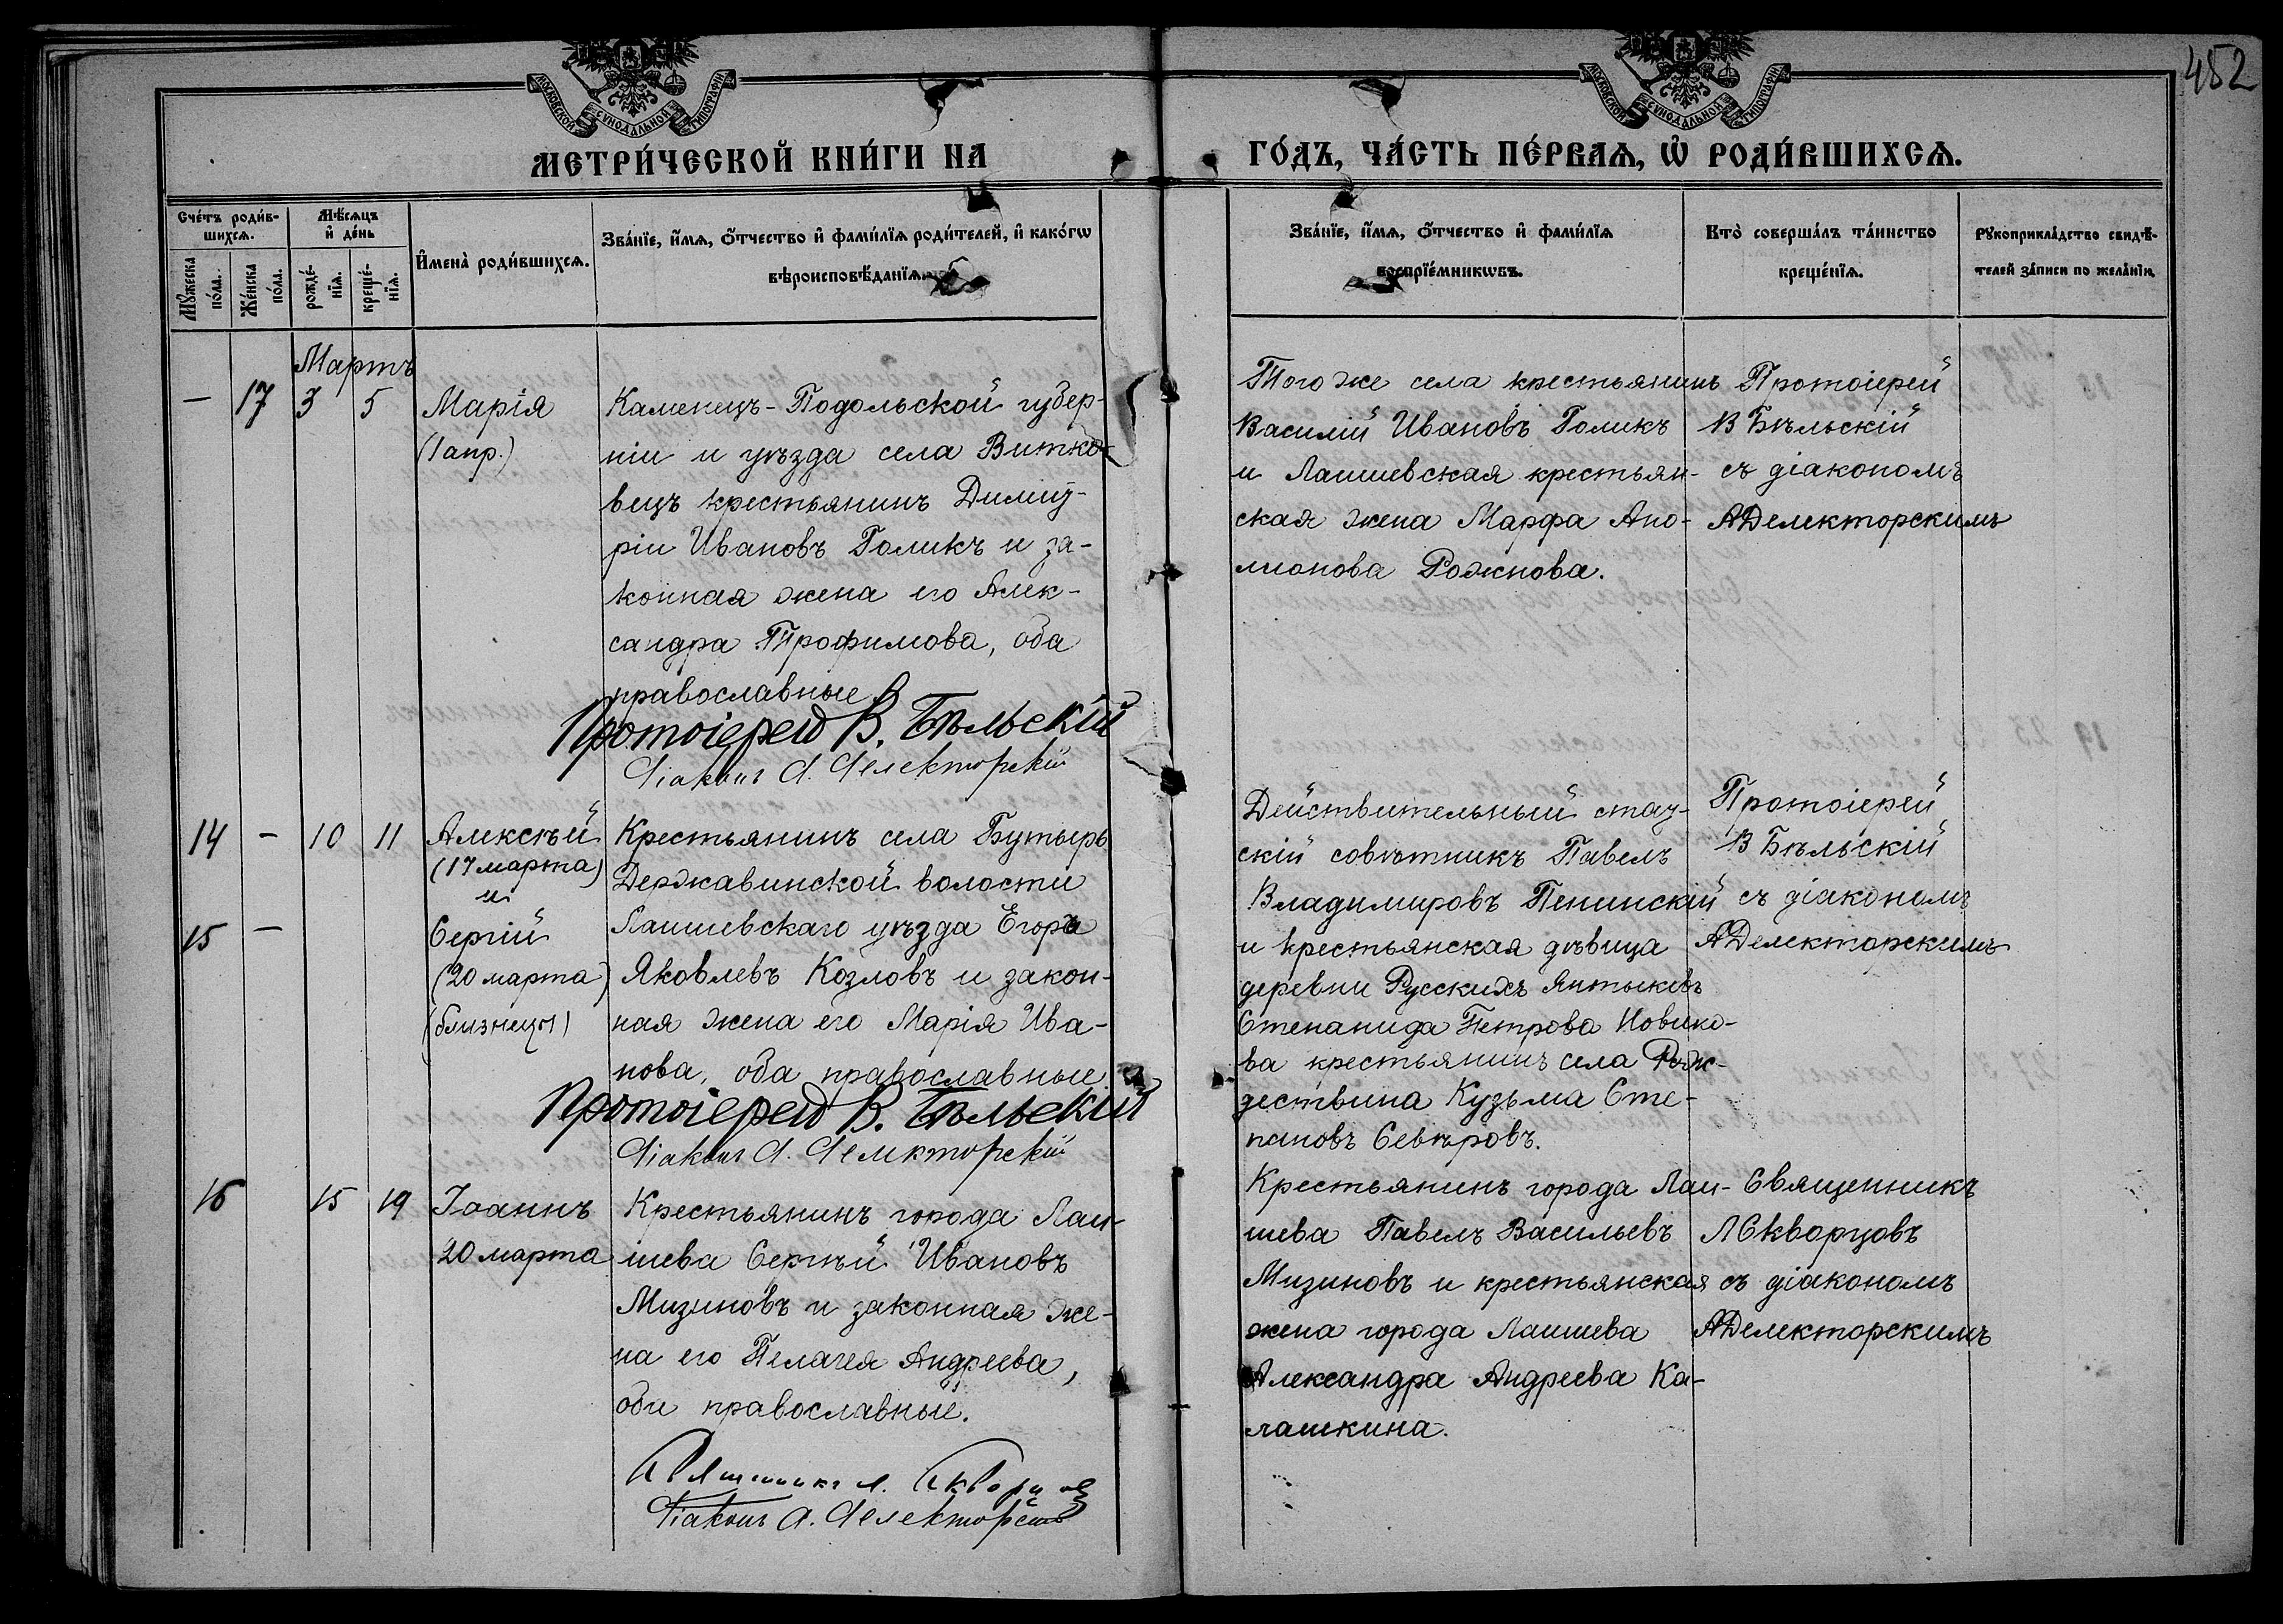 452
МОСКОВСКОЙ СѴНОДАЛЬНОЙ ТИПОГРАФІИ
МОСКОВСКОЙ СѴНОДАЛЬНОЙ ТИПОГРАФІИ
МЕТРИ́ЧЕСКОЙ КНИ́ГИ НА
ГО́ДЪ, ЧА́СТЬ ПЕ́РВАѦ, Ѡ҆ РОДИ́ВШИХСѦ.
Сче́тъ роди́в-
шихсѧ.
Мꙋ́жеска
по́ла.
Же́нска
по́ла.
Мѣ́сѧцъ
и҆ де́нь
рожде́-
нїѧ.
креще́-
нїѧ.
И҆мена̀ роди́вшихсѧ.
Зва́нїе, и҆́мѧ, ѻ҆́тчество и҆ фами́лїѧ роди́телей, и҆ како́гѡ
вѣроисповѣ́данїѧ.
Зва́нїе, и҆́мѧ, ѻ҆́тчество и҆ фами́лїѧ
воспрїе́мникѡвъ.
Кто̀ соверша́лъ та́инство
креще́нїѧ.
Рꙋкоприкла́дство свидѣ́-
телей за́писи по жела́нїю.
Мартъ
— 17 3 5
Марія
(1 апр.)
Каменецъ-Подольской губер-
ніи и уѣзда села Витко-
вецъ крестьянинъ Димит-
рій Ивановъ Голикъ и за-
конная жена его Алек-
сандра Трофимова, оба
православные
Протоіерей В. Бѣльскій
Діаконъ А. Делекторскій
Того же села крестьянинъ
Василій Ивановъ Голикъ
и Лаишевская крестьян-
ская жена Марфа Апо-
лионова Рожнова.
Протоіерей
В Бѣльскій
съ діакономъ
А Делекторскимъ
14 — 10 11
15 —
Алексѣй
(17 марта)
и
Сергій
(20 марта)
(близнецы)
Крестьянинъ села Бутырь
Державинской волости
Лаишевскаго уѣзда Егоръ
Яковлевъ Козловъ и закон-
ная жена его Марія Ива-
нова, оба православные
Протоіерей В. Бѣльскій
Діаконъ А. Делекторскій
Действительный стат-
скій совѣтникъ Павелъ
Владимировъ Пенинскій
и крестьянская дѣвица
деревни Русскихъ Янтыковъ
Степанида Петрова Новико-
ва крестьянинъ села Рож-
дествина Кузьма Сте-
пановъ Севѣровъ.
Протоіерей
В Бѣльскій
съ діакономъ
А Делекторскимъ
16 15 19
Іоаннъ
20 марта
Крестьянинъ города Лаи-
шева Сергѣй Ивановъ
Мизиновъ и законная же-
на его Пелагея Андреева,
оби православные.
Священникъ Л. Скворцовъ
Діаконъ А. Делекторскій
Крестьянинъ города Лаи-
шева Павелъ Васильевъ
Мизиновъ и крестьянская
жена города Лаишева
Александра Андреева Ка-
лашкина.
Священникъ
Л Скворцовъ
съ діакономъ
А Делекторскимъ